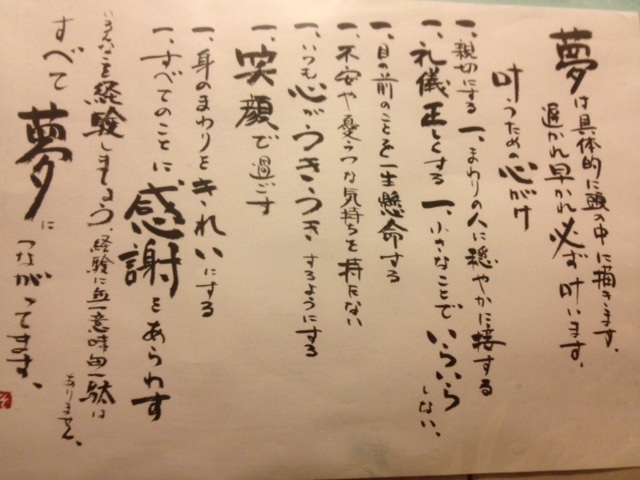 夢は具体的に頭の中に描きます。
遅かれ早かれ必ず叶います。
叶うための心がけ
一、親切にする 一、まわりの人に穏やかに接する
一、礼儀正しくする 一、小さなことでいらいらしない。
一、目の前のことを一生懸命する
一、不安や憂うつな気持ちを持たない
一、いつも心がうきうきするようにする
一、笑顔で過ごす
一、身のまわりをきれいにする
一、すべてのことに感謝をあらわす
いろんなことを経験しましょう、経験に無意味無駄はありません、
すべて夢につながってます、